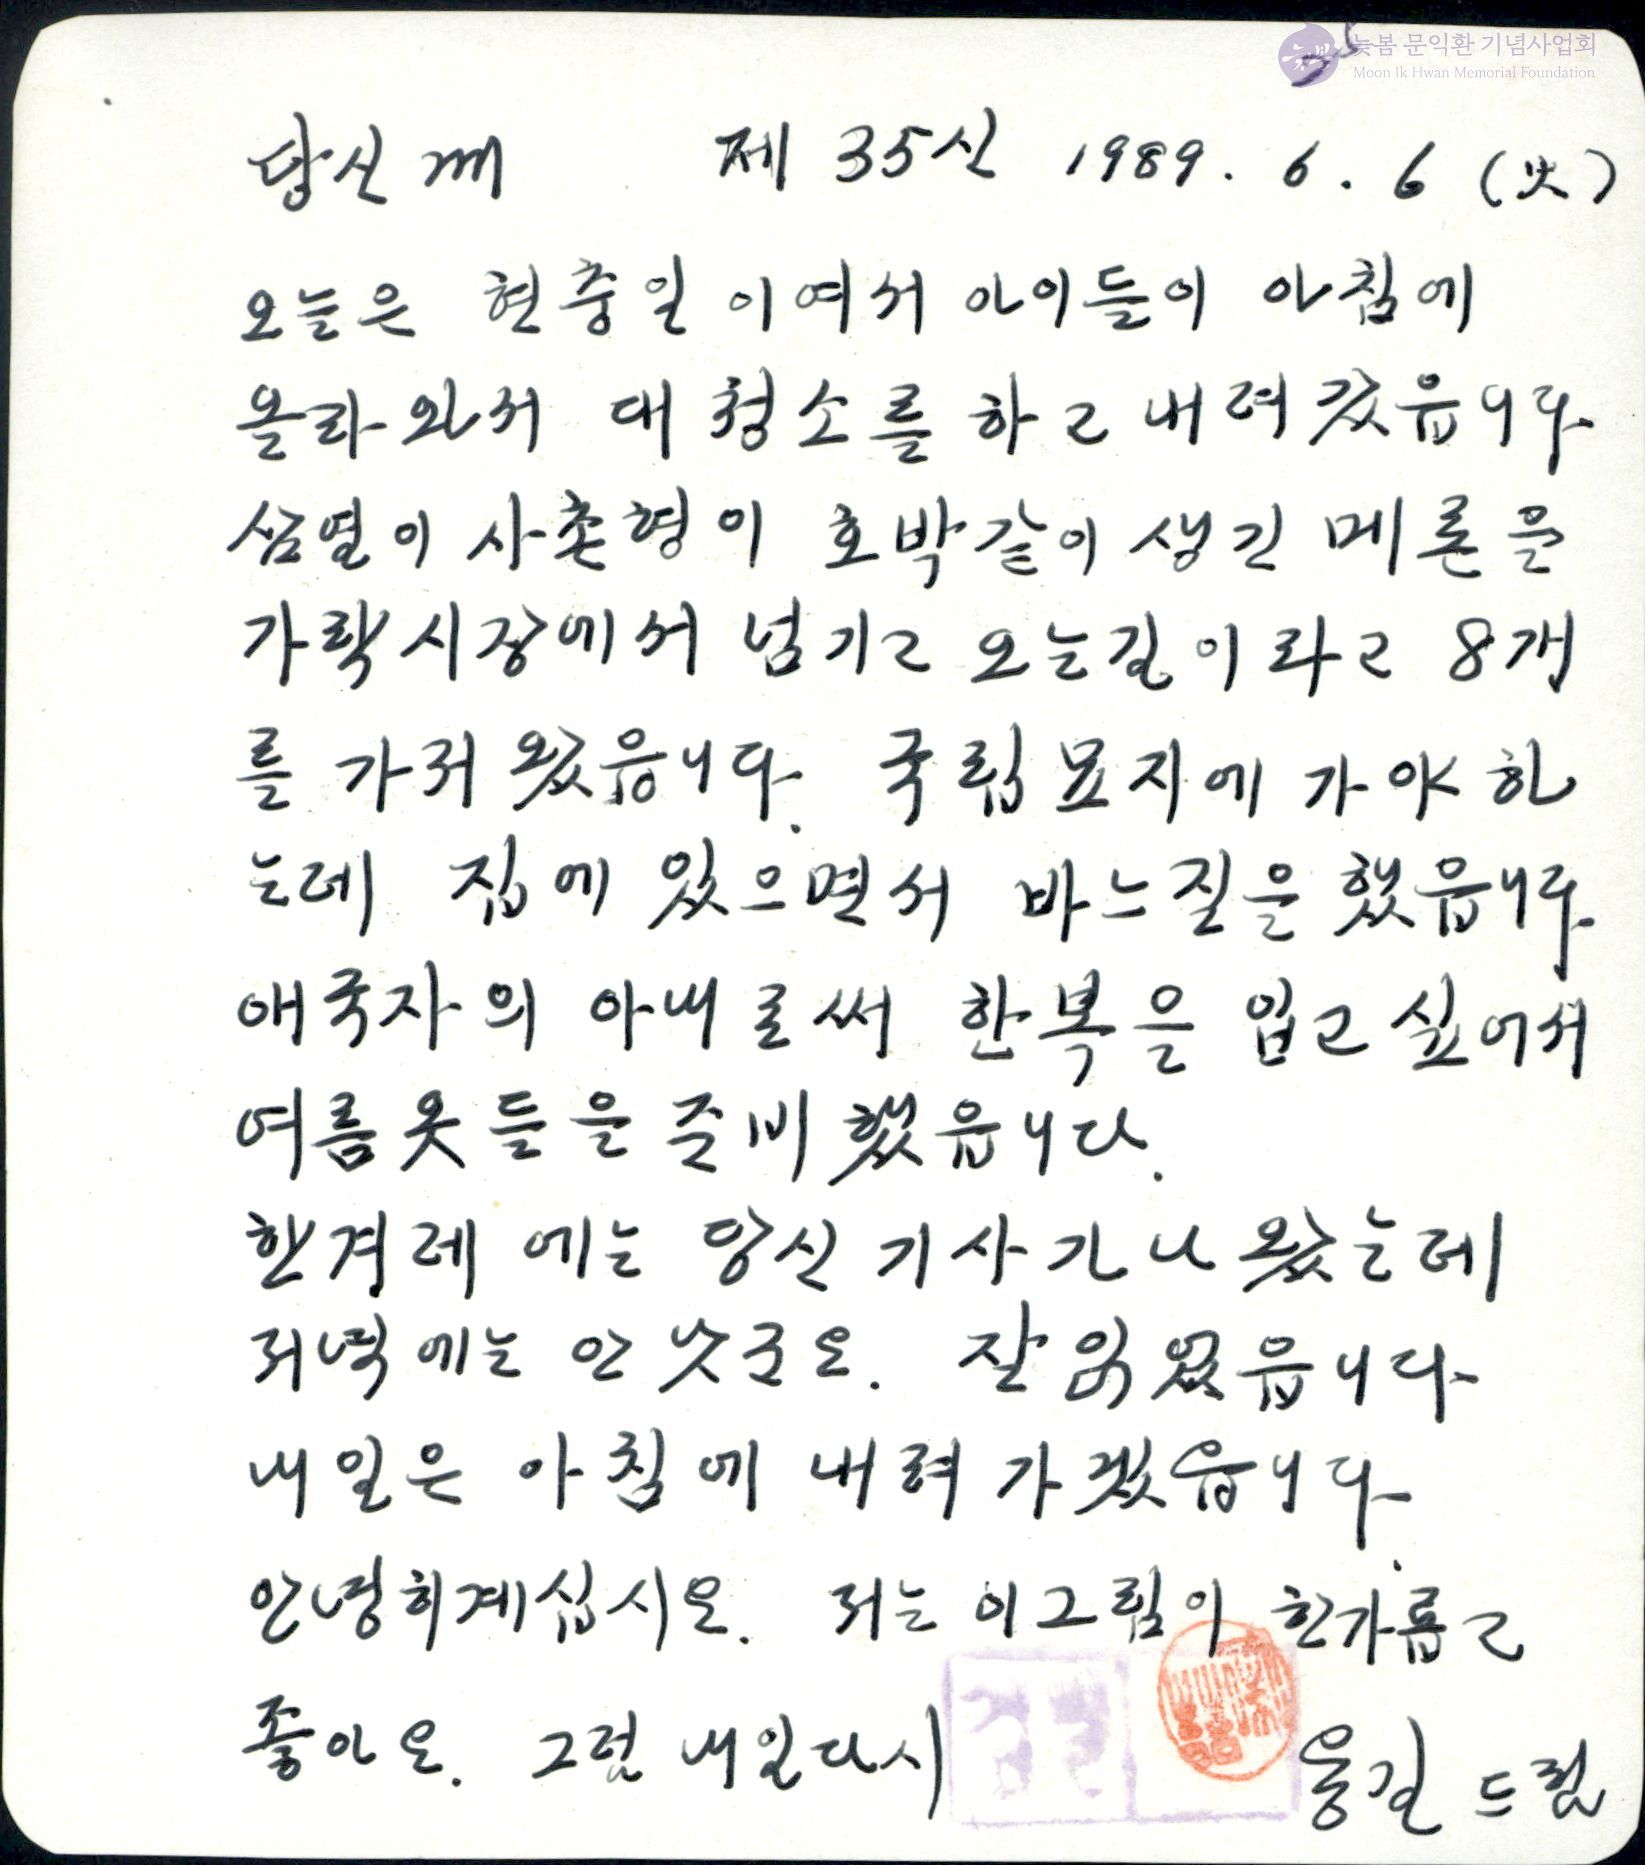 늦봄 문익환 기념사업회
Moon Ik Hwan Memorial Foundation
35
당신께 제 35신 1989. 6. 6 (火)
오늘은 현충일 이여서 아이들이 아침에
올라와서 대청소를 하고 내려갔읍니다
삼열이 사촌형이 호박같이 생긴 메론을
가락시장에서 넘기고 오는길이라고 8개
를 가져 왔읍니다. 국립묘지에 가야 하
는데 집에 있으면서 바느질을 했읍니다
애국자의 아내로써 한복을 입고 싶어서
여름옷들을 준비했읍니다.
한겨레 에는 당신 기사가 나왔는데
저녁에는 안 낫군요. 잘 읽었읍니다
내일은 아침에 내려가겠읍니다.
안녕히계십시요. 저는 이그림이 한가롭고
좋아요. 그럼 내일다시
검필
용길 드림